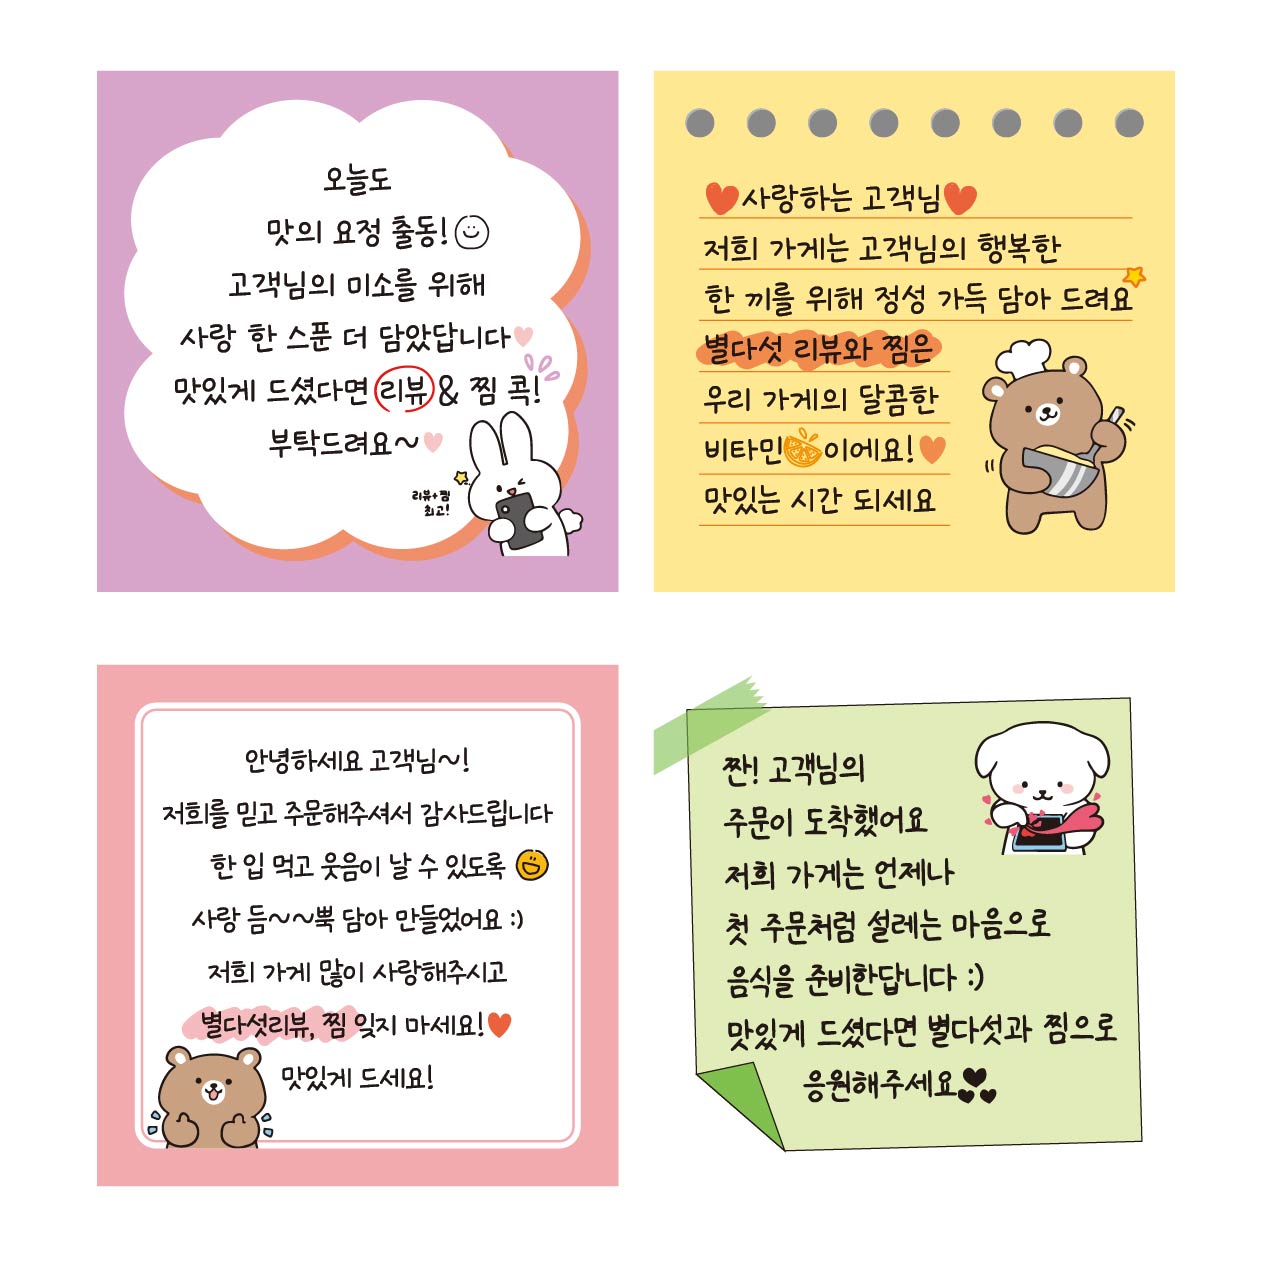 오늘도
맛의 요정 출동!
고객님의 미소를 위해
사랑 한 스푼 더 담았답니다
맛있게 드셨다면 리뷰 & 찜 콕!
부탁드려요~
리뷰+찜
최고!
사랑하는 고객님
저희 가게는 고객님의 행복한
한 끼를 위해 정성 가득 담아 드려요
별다섯 리뷰와 찜은
우리 가게의 달콤한
비타민이에요!
맛있는 시간 되세요
안녕하세요 고객님~!
저희를 믿고 주문해주셔서 감사드립니다
한 입 먹고 웃음이 날 수 있도록
사랑 듬~~뿍 담아 만들었어요 :)
저희 가게 많이 사랑해주시고
별다섯리뷰, 찜 잊지 마세요!
맛있게 드세요!
짠! 고객님의
주문이 도착했어요
저희 가게는 언제나
첫 주문처럼 설레는 마음으로
음식을 준비한답니다 :)
맛있게 드셨다면 별다섯과 찜으로
응원해주세요